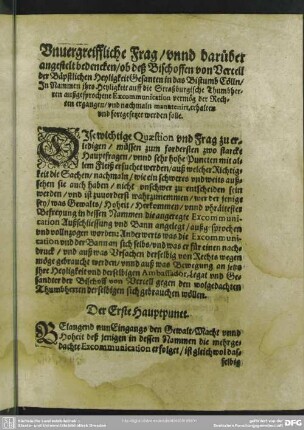 Vnuergreiffliche Frag / vnnd darüber
angestelt bedencken / ob deß Bischoffen von Verceil
der Bäpstlichen Heyligkeit Gesanten in das Bistumb Cölln /
In Nammen ihro Heyligkeit auff die Straßburgische Thumbher-
ren außgesprochene Excommunication vermög der Rech-
ten ergangen / vnd nachmaln manutenirt, erhalten
vnd fortgesetzt werden solle.
DIse wichtige Quæstion vnd Frag zu er-
ledigen / müssen zum fordersten zwo starcke
Hauptfragen / vnnd sehr hohe Puncten mit al-
lem Fleiß ersuchet werden / auß welcher Richtig-
keit die Sachen / nachmaln / wie ein schwerers vnd weits auß-
sehen sie auch haben / nicht vnschwer zu entscheiden sein
werden / vnd ist zuuorderst wahrzunemmen / wer der jenig
sey / was Gewalts / Hoheit / Herkommen / vnnd
in dessen Nammen die angeregte Excommuni-
cation Auffschliessung vnd Bann angelegt / außgesprochen
vnd vollnzogen worden: Anderwerts was die Excommuni-
cation vnd der Bann an sich selbs / vnd was er für einen nach-
druck / vnd auß was Vrsachen derselbig von Rechts wegen
möge gebraucht werden / vnnd auß was Bewegung an jetzo
ihre Heyligkeit vnd derselbigen Ambassador, Legat vnd Ge-
sandter der Bischoff von Verceil gegen den wolgedachten
Thumbherren der selbigen sich gebrauchen wöllen.
Der Erste Hauptpunct.
BElangend nun Eingangs den Gewalt / Macht vnnd
Hoheit deß jenigen in dessen Nammen die mehrge-
dachte Excommunication erfolget / ist gleichwol daß
selbig